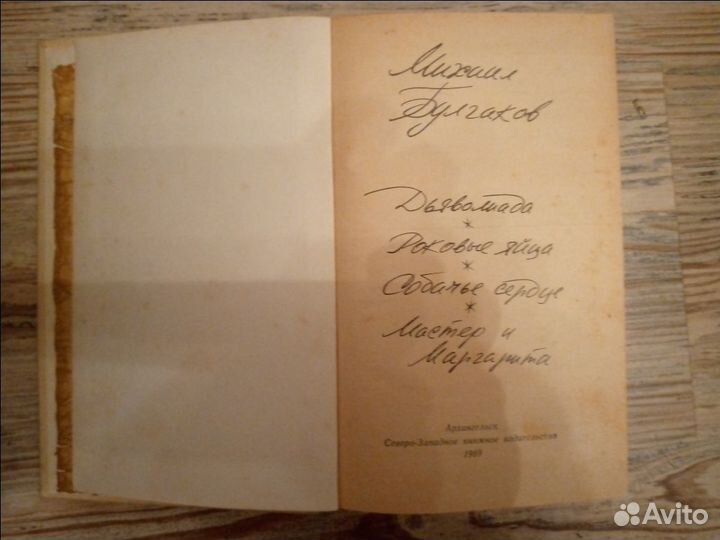 Михаил
Булгаков
Дьяволиада
*
Роковые яйца
*
Собачье сердце
*
Мастер и
Маргарита
Архангельск
Северо-Западное книжное издательство
1989
Avito